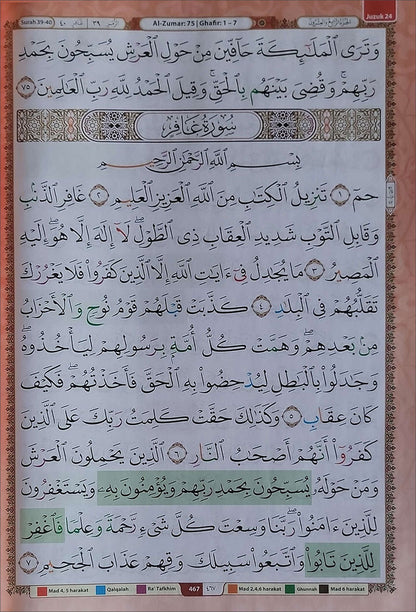 Surah 39-40 غافر ٤٠ الزمر ٣٩ Al-Zumar: 75 | Ghafir: 1 – 7 الجزء الرابع والعشرون Juzuk 24
وَتَرَى الْمَلَٰٓئِكَةَ حَآفِّينَ مِنْ حَوْلِ الْعَرْشِ يُسَبِّحُونَ بِحَمْدِ
رَبِّهِمْ ۖ وَقُضِيَ بَيْنَهُم بِالْحَقِّ وَقِيلَ الْحَمْدُ لِلَّهِ رَبِّ الْعَٰلَمِينَ ٧٥
سُورَةُ غَافِرٍ
بِسْمِ اللَّهِ الرَّحْمَٰنِ الرَّحِيمِ
حمٓ ١ تَنزِيلُ الْكِتَٰبِ مِنَ اللَّهِ الْعَزِيزِ الْعَلِيمِ ٢ غَافِرِ الذَّنۢبِ
وَقَابِلِ التَّوْبِ شَدِيدِ الْعِقَابِ ذِي الطَّوْلِ ۖ لَآ إِلَٰهَ إِلَّا هُوَ ۖ إِلَيْهِ
الْمَصِيرُ ٣ مَا يُجَٰدِلُ فِيٓ ءَايَٰتِ اللَّهِ إِلَّا الَّذِينَ كَفَرُوا فَلَا يَغْرُرْكَ
تَقَلُّبُهُمْ فِي الْبِلَٰدِ ٤ كَذَّبَتْ قَبْلَهُمْ قَوْمُ نُوحٍ وَالْأَحْزَابُ
مِنۢ بَعْدِهِمْ ۖ وَهَمَّتْ كُلُّ أُمَّةٍۭ بِرَسُولِهِمْ لِيَأْخُذُوهُ ۖ
وَجَٰدَلُوا بِالْبَٰطِلِ لِيُدْحِضُوا بِهِ الْحَقَّ فَأَخَذْتُهُمْ ۖ فَكَيْفَ
كَانَ عِقَابِ ٥ وَكَذَٰلِكَ حَقَّتْ كَلِمَتُ رَبِّكَ عَلَى الَّذِينَ
كَفَرُوٓا أَنَّهُمْ أَصْحَٰبُ النَّارِ ٦ الَّذِينَ يَحْمِلُونَ الْعَرْشَ
وَمَنْ حَوْلَهُۥ يُسَبِّحُونَ بِحَمْدِ رَبِّهِمْ وَيُؤْمِنُونَ بِهِۦ وَيَسْتَغْفِرُونَ
لِلَّذِينَ ءَامَنُوا رَبَّنَا وَسِعْتَ كُلَّ شَيْءٍ رَّحْمَةً وَعِلْمًا فَاغْفِرْ
لِلَّذِينَ تَابُوا وَاتَّبَعُوا سَبِيلَكَ وَقِهِمْ عَذَابَ الْجَحِيمِ ٧
Mad 4, 5 harakat Qalqalah Ra' Tafkhim 467 ٤٦٧ Mad 2,4,6 harakat Ghunnah Mad 6 harakat